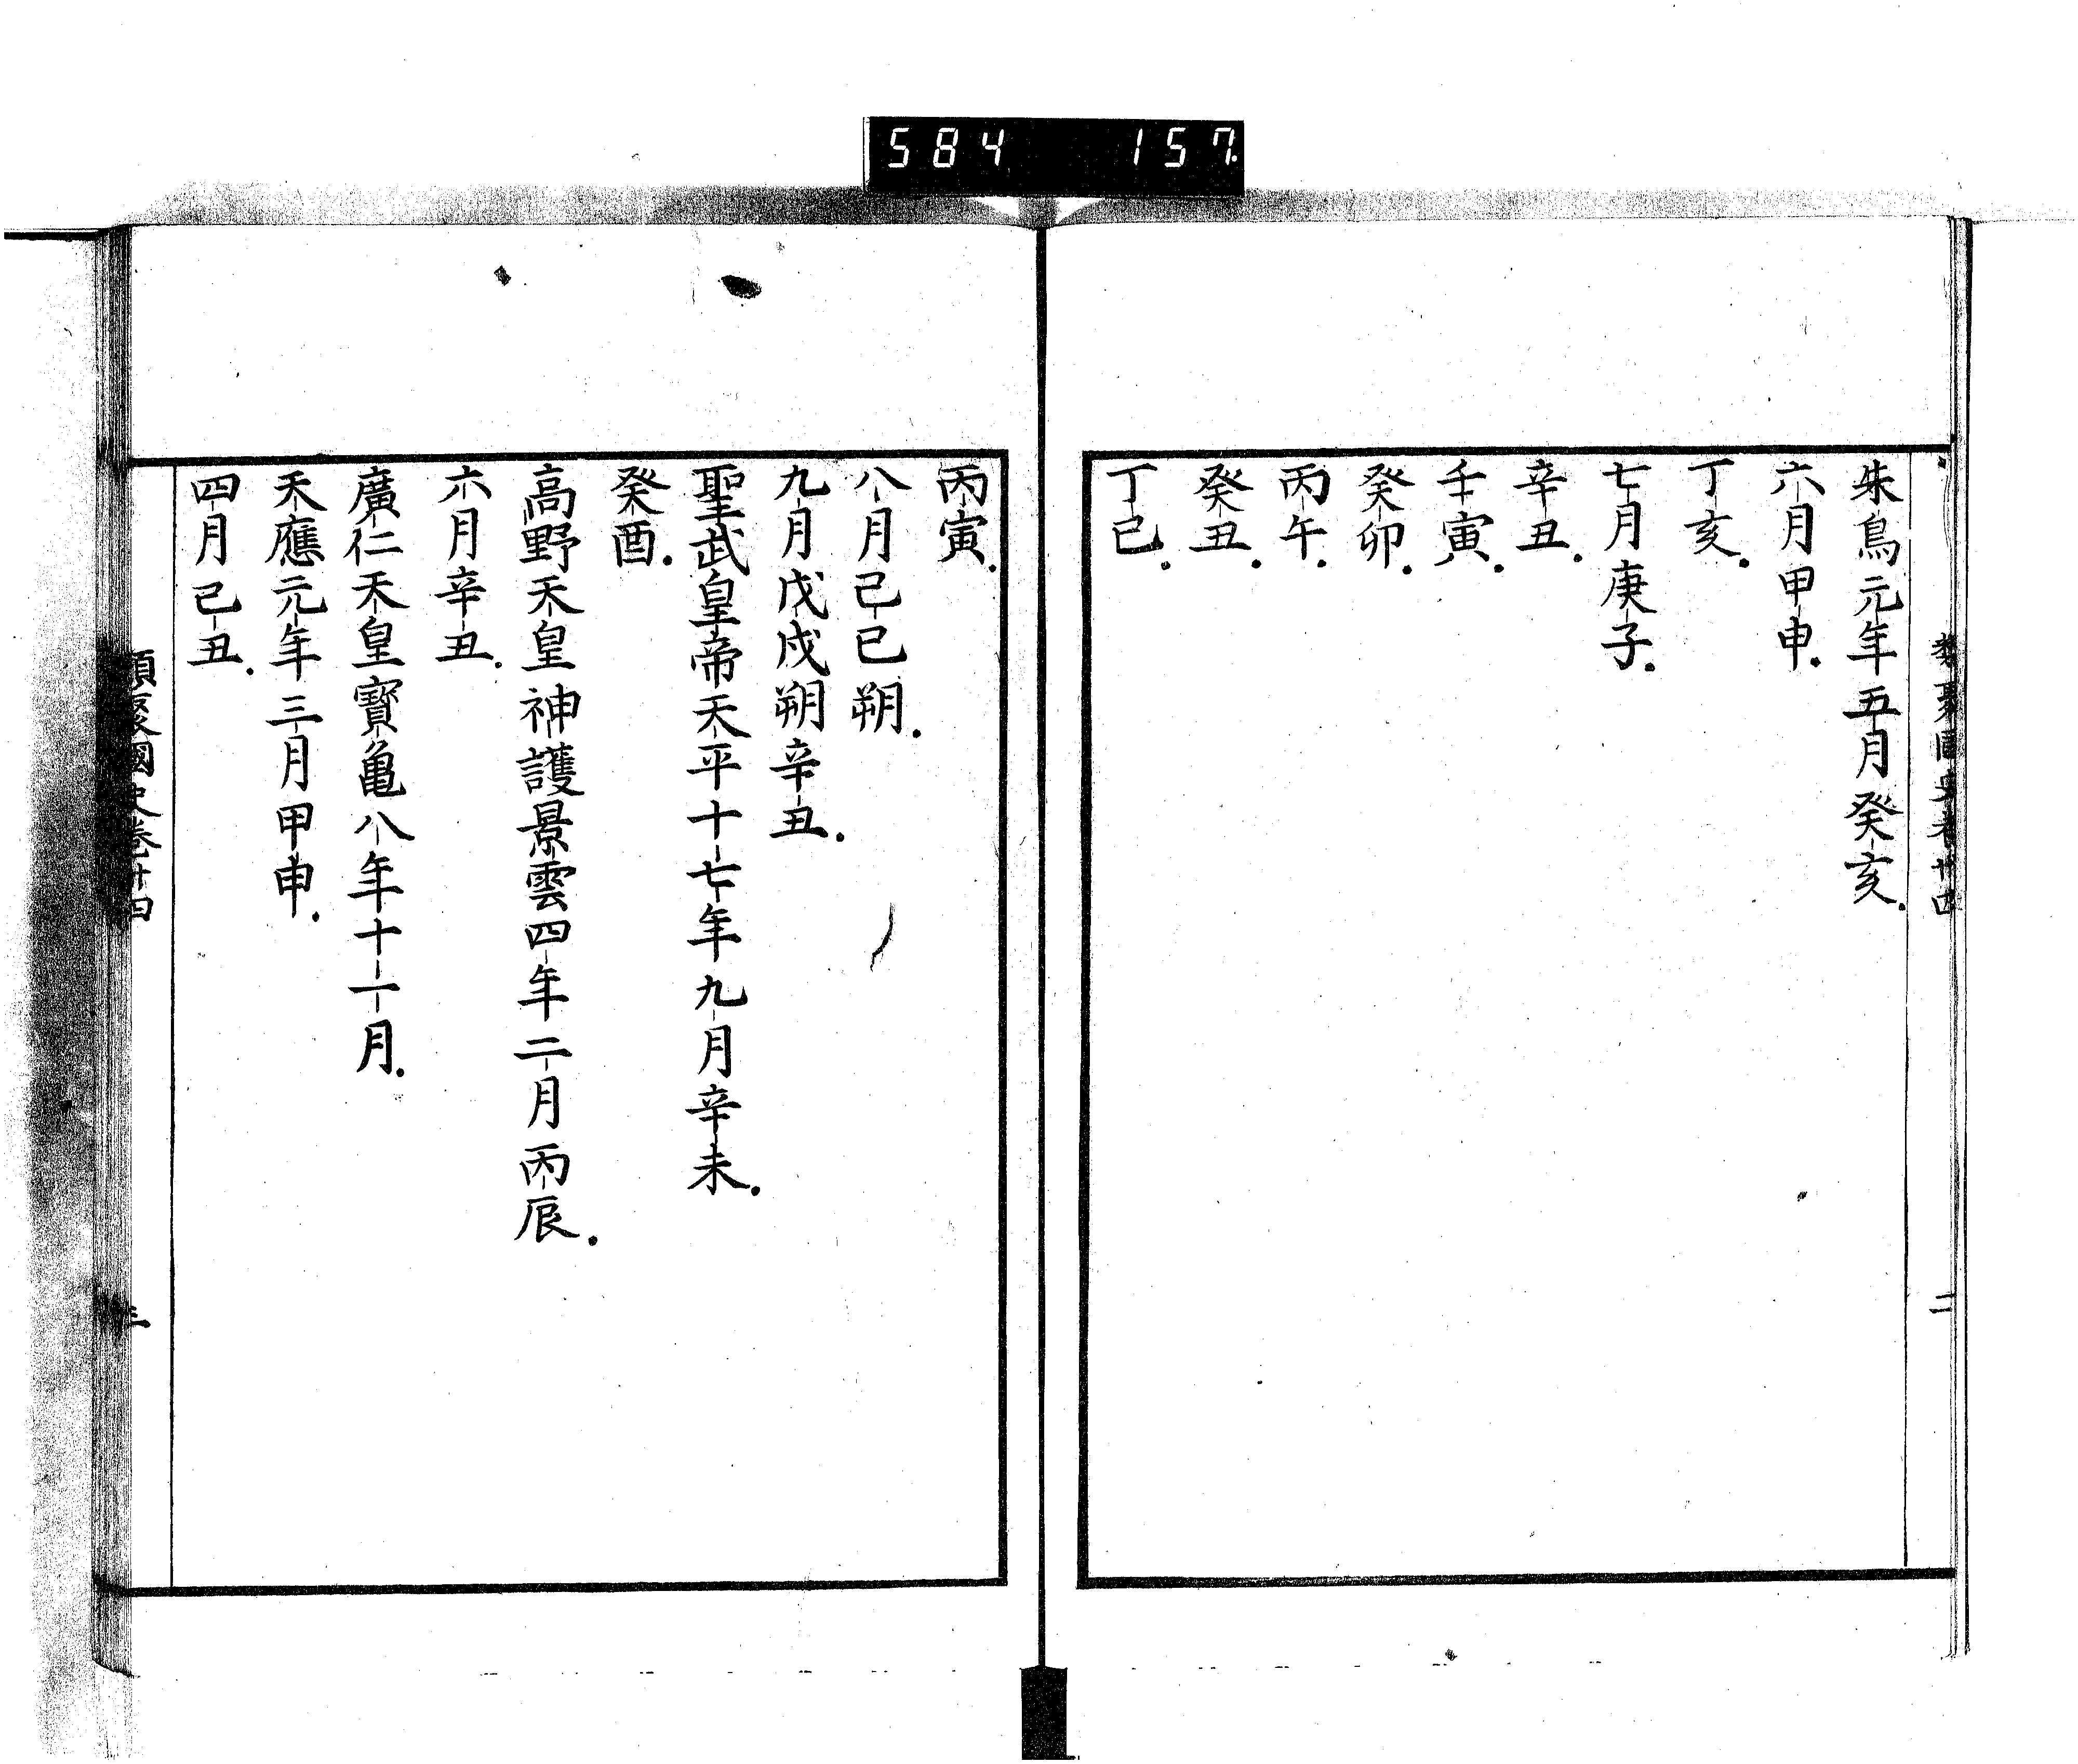 584 157.
類聚國史卷廿四 二
朱鳥元年五月癸亥.
六月甲申.
丁亥.
七月庚子.
辛丑.
壬寅.
癸卯.
丙午.
癸丑.
丁巳.
丙寅.
八月己巳朔.
九月戊戌朔辛丑.
聖武皇帝天平十七年九月辛未.
癸酉.
高野天皇神護景雲四年二月丙辰.
六月辛丑.
廣仁天皇寳亀八年十一月.
天應元年三月甲申.
四月己丑.
類聚國史卷廿四 三